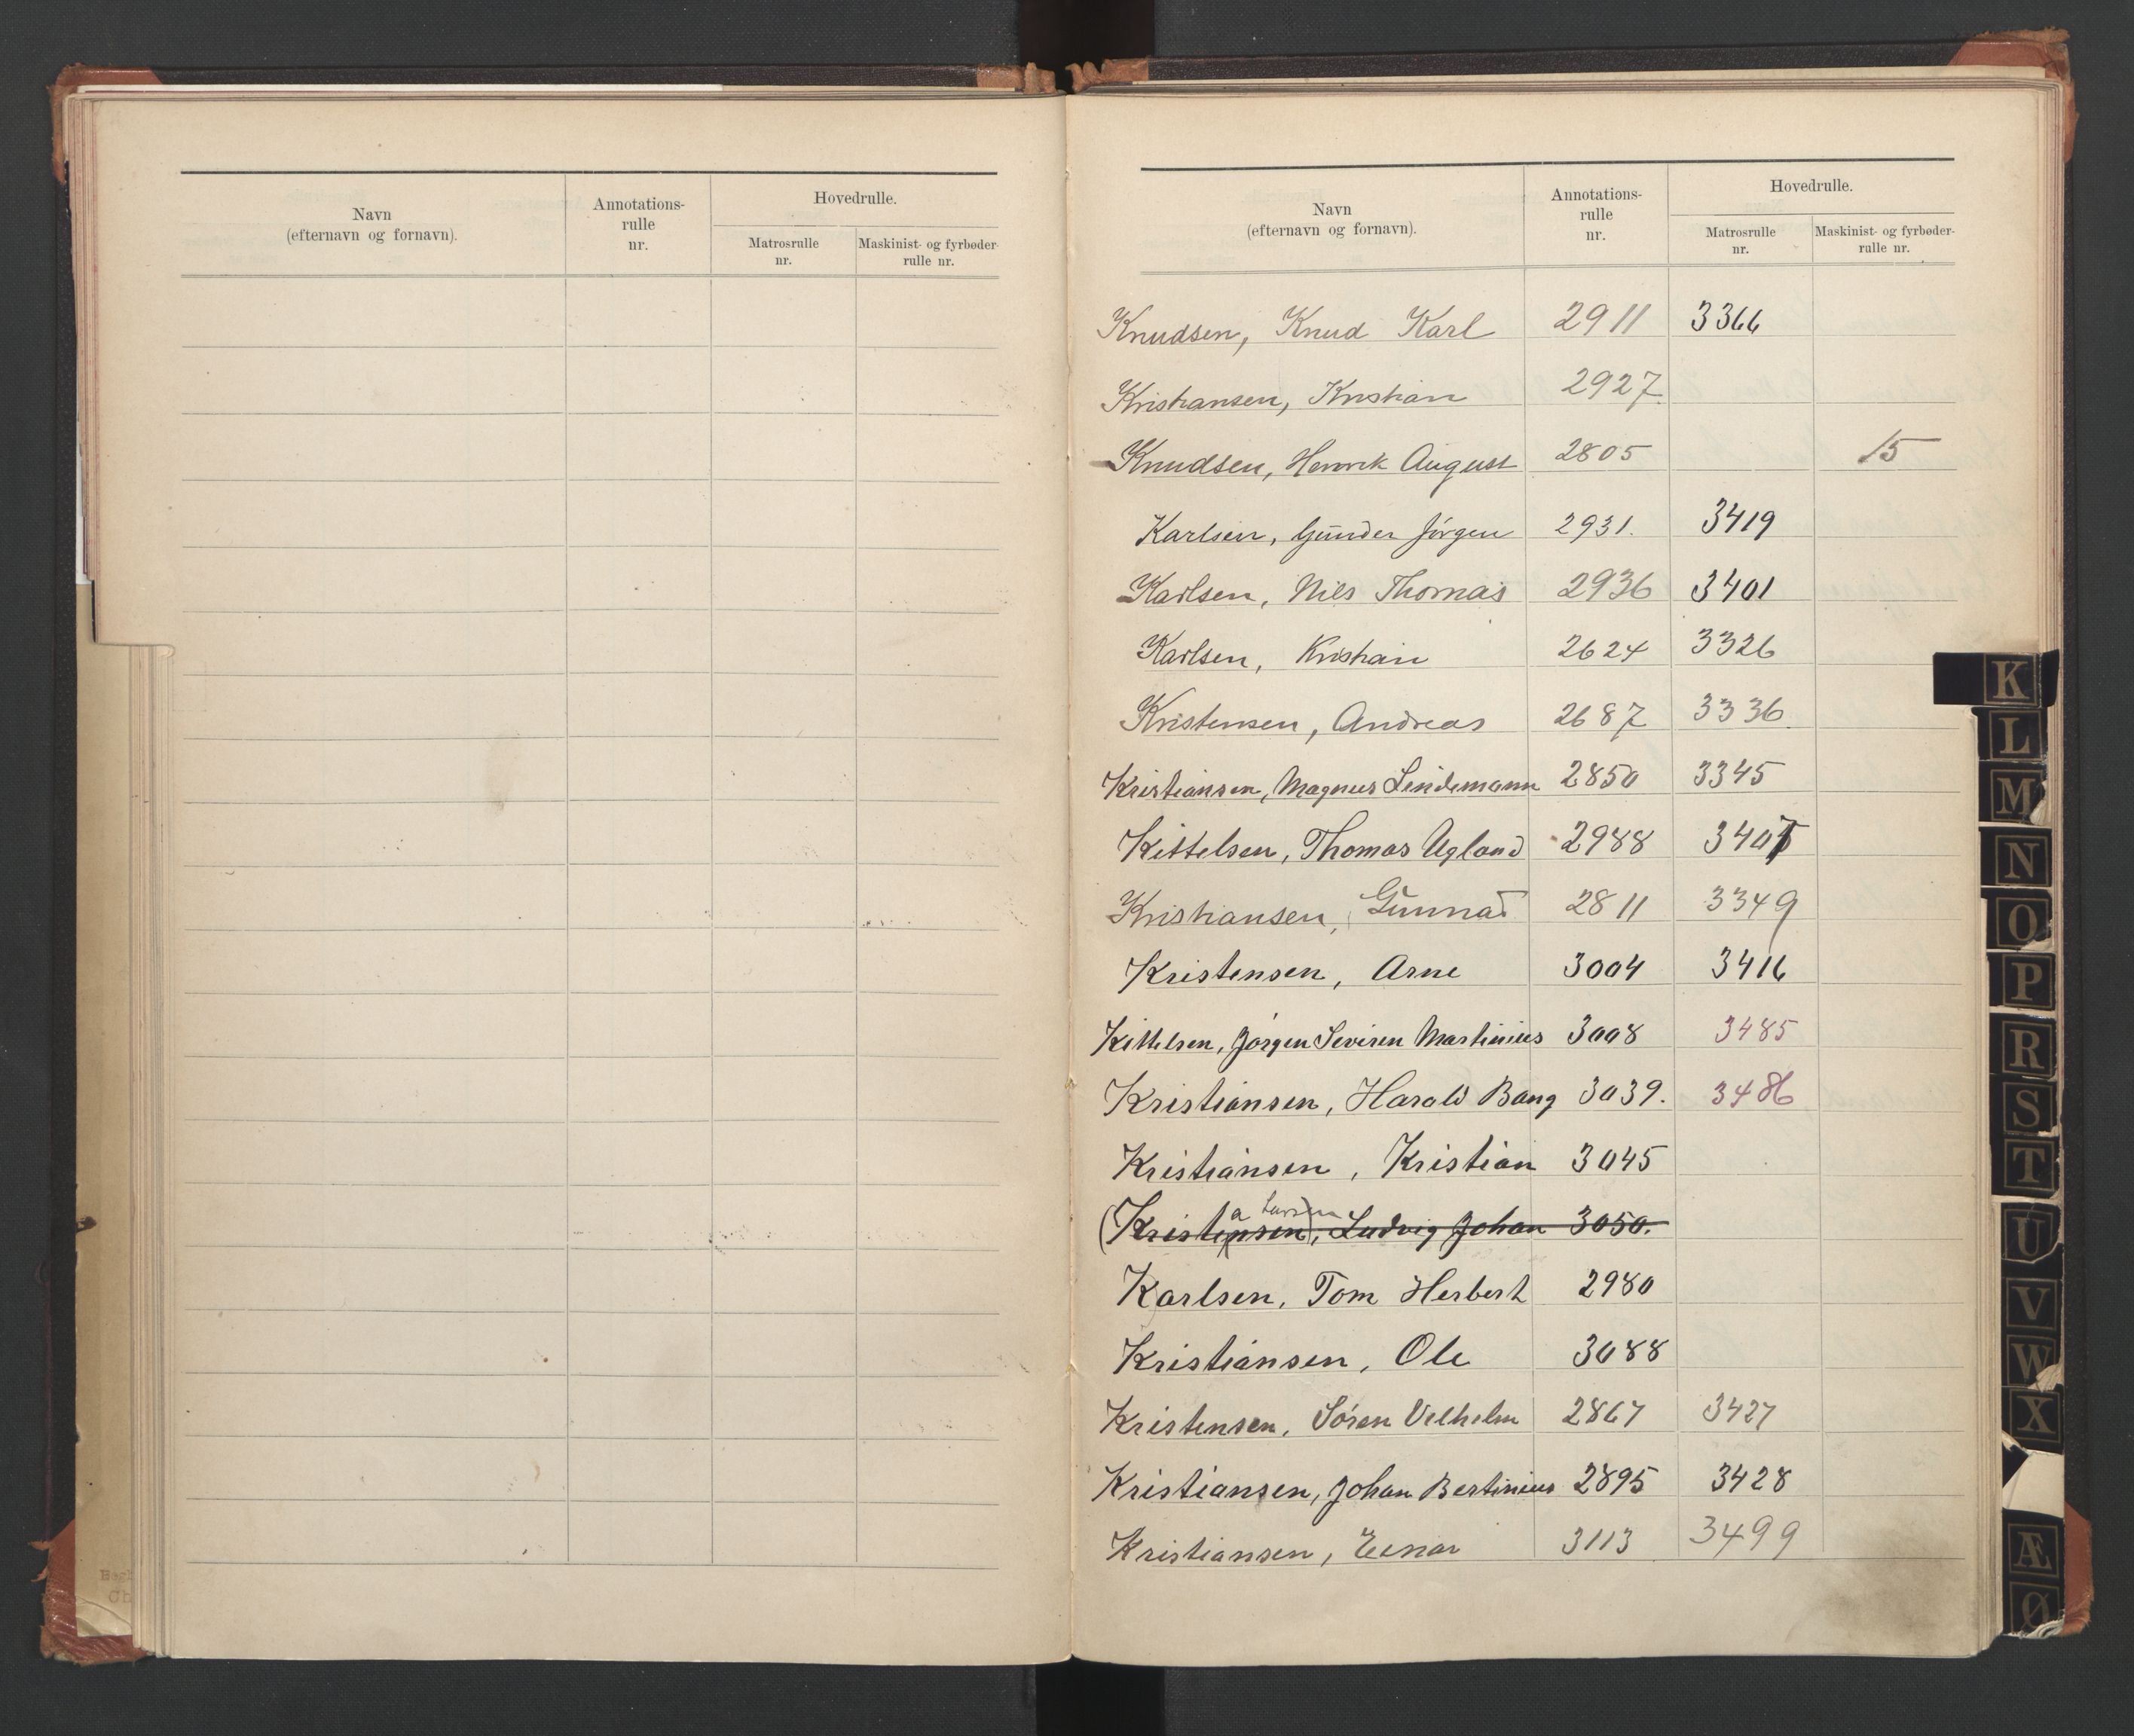 Navn
(efternavn og fornavn).
Annotations-
rulle
nr.
Hovedrulle.
Matrosrulle
nr.
Maskinist- og fyrbøder-
rulle nr.
Navn
(efternavn og fornavn).
Annotations-
rulle
nr.
Hovedrulle.
Matrosrulle
nr.
Maskinist- og fyrbøder-
rulle nr.
Knudsen, Knud Karl 2911 3366
Kristiansen, Kristian 2927
Knudsen, Henrik August 2805 15
Karlsen, Gunder Jörgen 2931. 3419
Karlsen, Nils Thomas 2936 3401
Karlsen, Kristian 2624 3326
Kristensen, Andreas 2687 3336
Kristiansen, Magnus Lindemann 2850 3345
Kittelsen, Thomas Ugland 2988 3407
Kristiansen, Gunnar 2811 3349
Kristensen, Arne 3004 3416
Kittelsen, Jørgen Severin Martinius 3008 3485
Kristiansen, Harald Bang 3039. 3486
Kristiansen, Kristian 3045
a Larsen
(Kristensen), Ludvig Johan 3050.
Karlsen, Tom Herbert 2980
Kristiansen, Ole 3088
Kristensen, Sören Vilhelm 2867 3427
Kristiansen, Johan Bertinius 2895 3428
Kristiansen, Einar 3113 3499
K
L
M
N
O
P
R
S
T
U
V
W
X
Æ
Ø